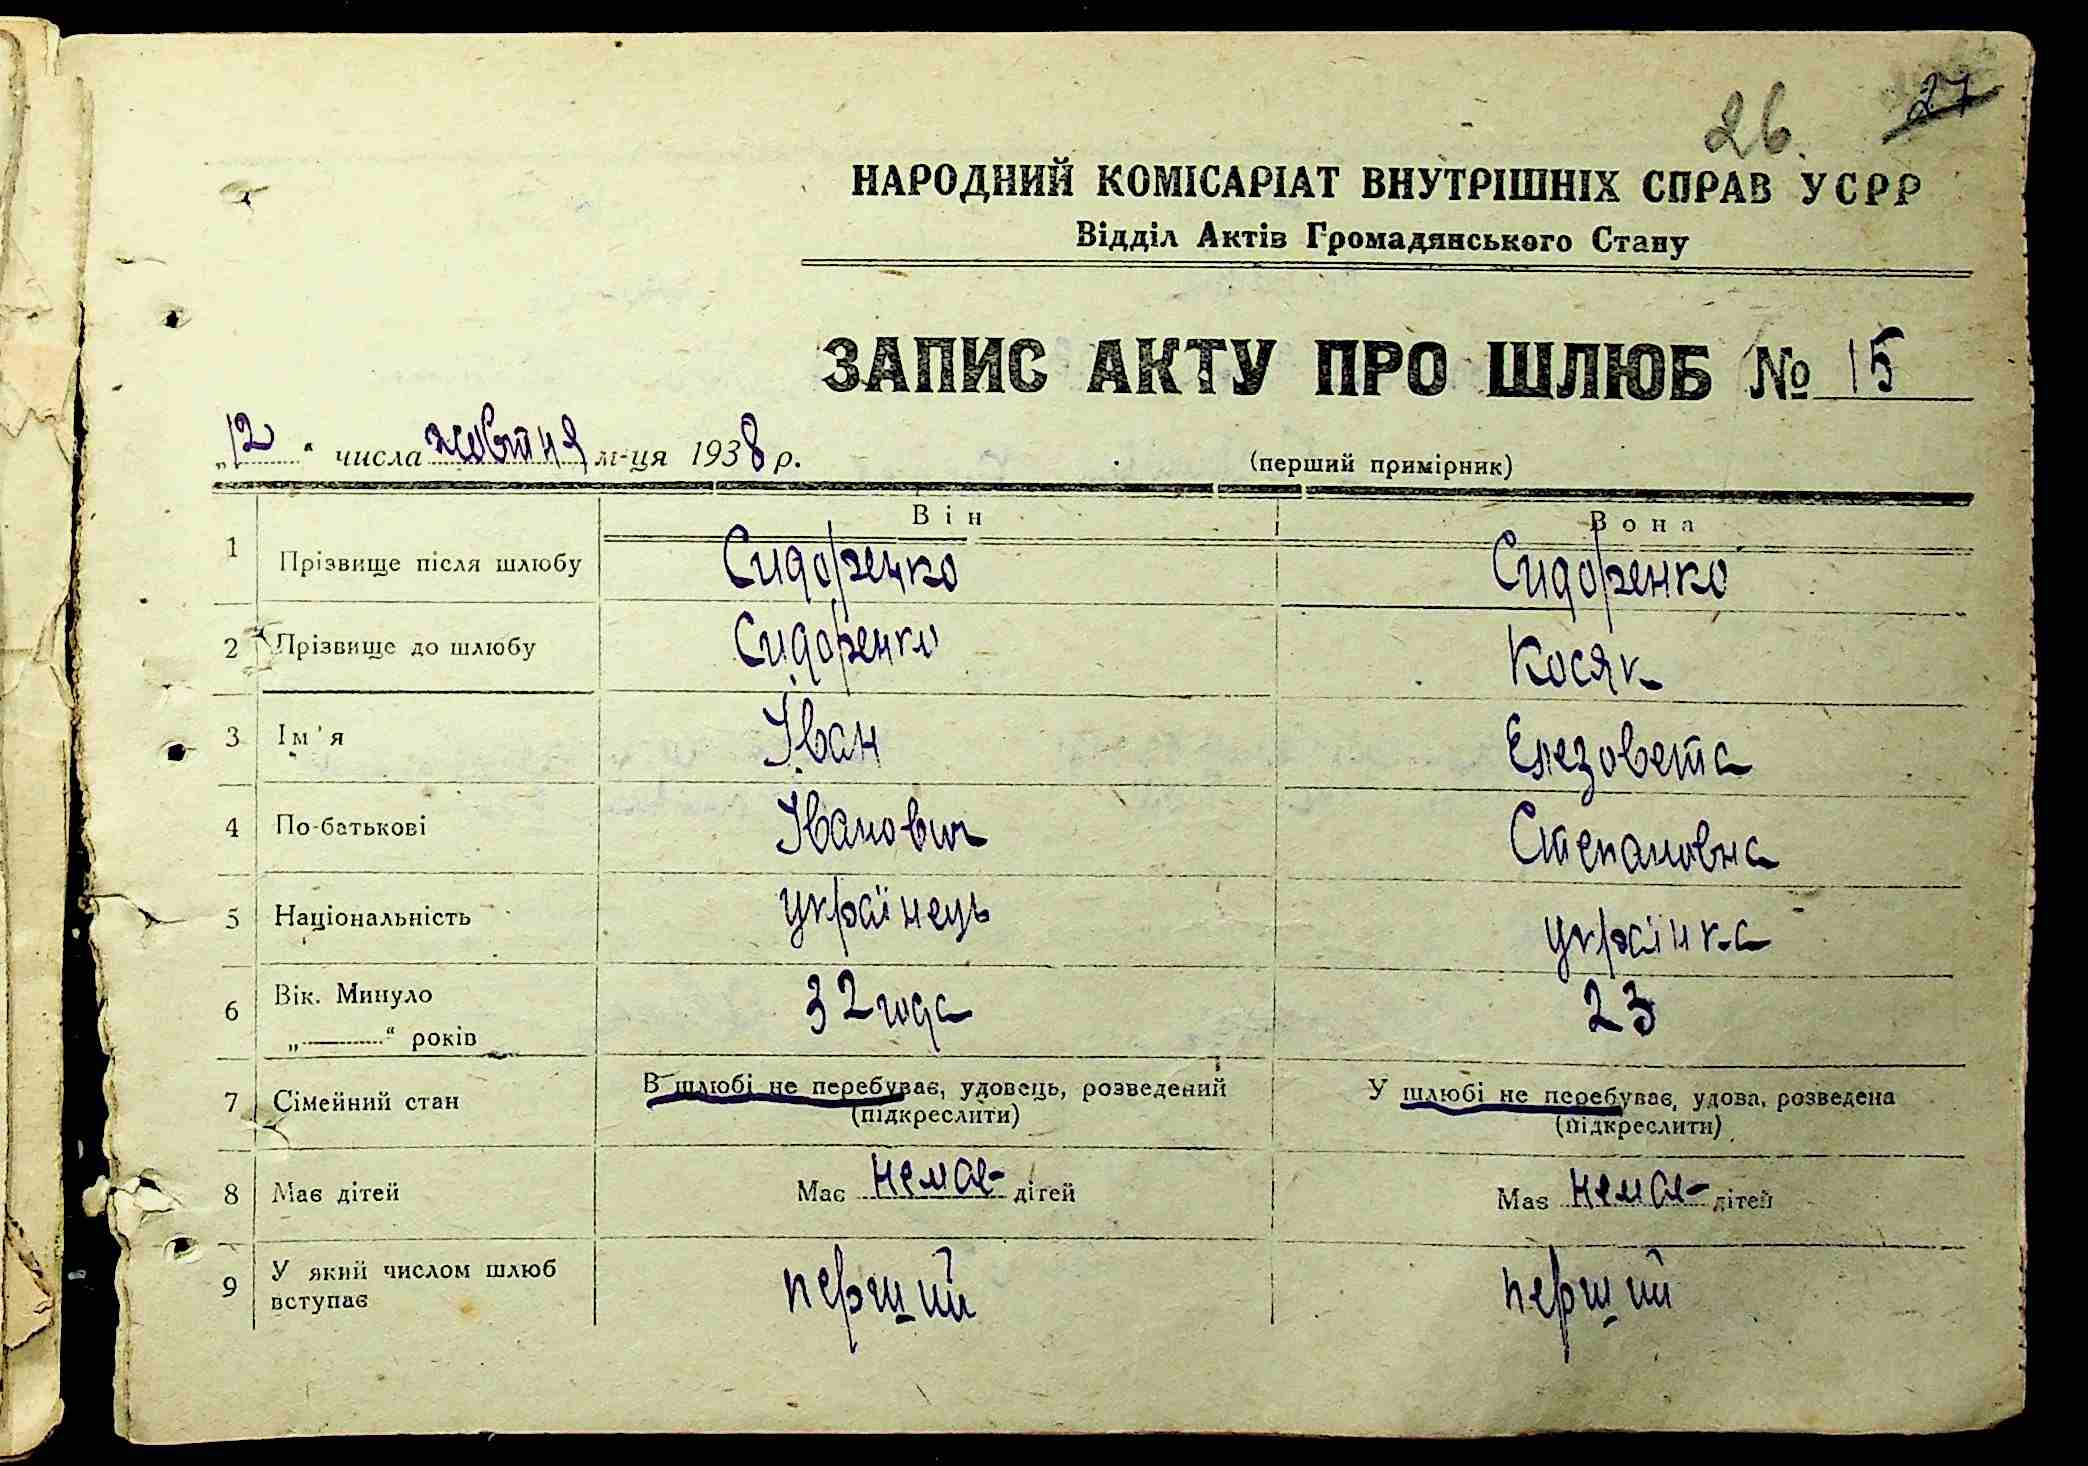 26. 27
НАРОДНИЙ КОМІСАРІАТ ВНУТРІШНІХ СПРАВ УСРР
Відділ Актів Громадянського Стану
ЗАПИС АКТУ ПРО ШЛЮБ № 15
„12“ числа жовтня м-ця 1938 р. (перший примірник)
Він Вона
1 Прізвище після шлюбу Сидоренко Сидоренко
2 Прізвище до шлюбу Сидоренко Косяк
3 Ім'я Іван Елезовета
4 По-батькові Іванович Степановна
5 Національність українець українка
6 Вік. Минуло 32 года 23
„ “ років
7 Сімейний стан В шлюбі не перебуває, удовець, розведений У шлюбі не перебуває, удова, розведена
(підкреслити) (підкреслити)
8 Має дітей Має немає дітей Має немає дітей
9 У який числом шлюб вступає перший перший